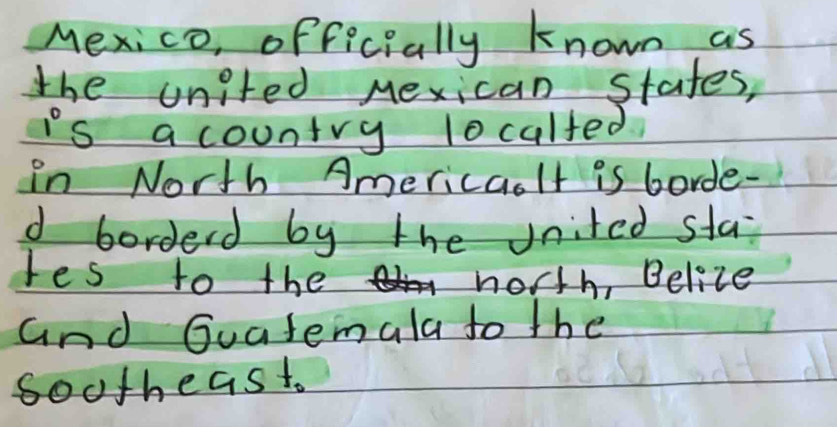 Mexico, officially known as
the united Mexican states,
is a country localted
in North America. It is borde-
d borderd by the united sta-
tes to the north, Belize
and Guatemala to the
southeast.